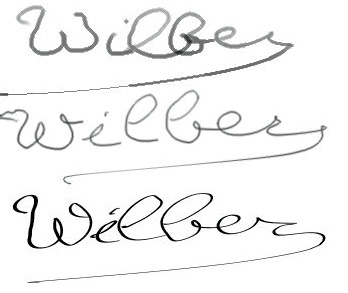 Wilber
Wilber
Wilber